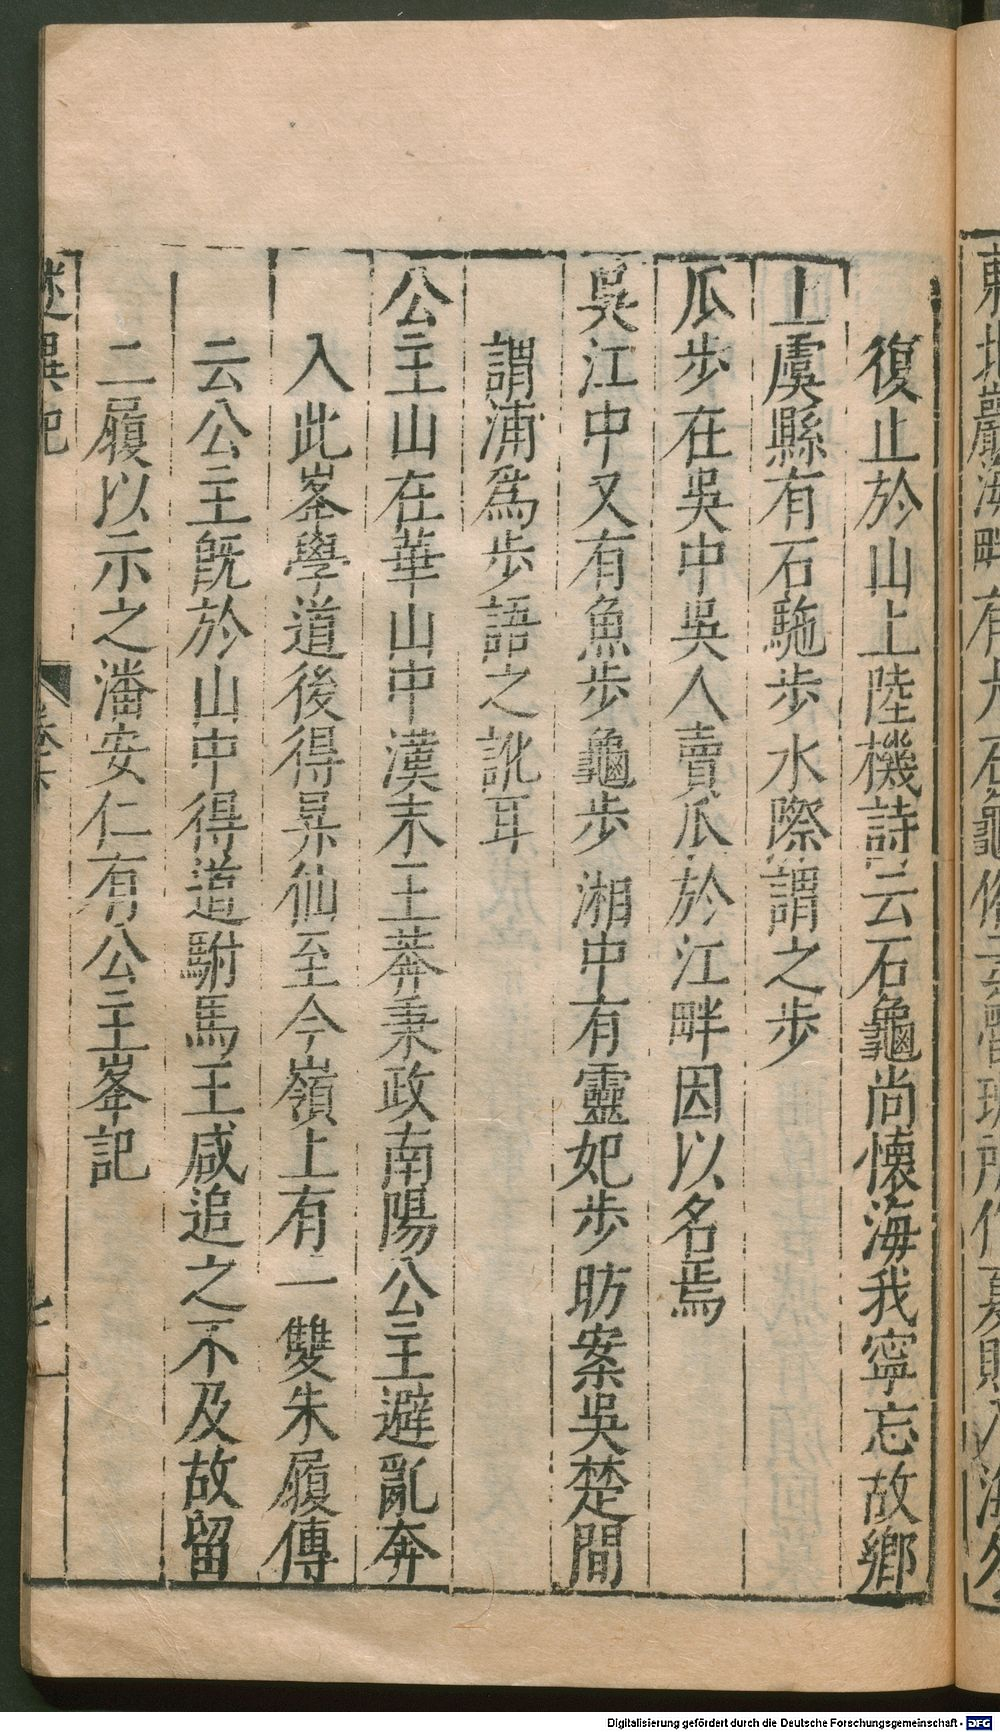 復止於山上陸機詩云石龜尚懷海我寧忘故鄉
上虞縣有石駞步水際謂之步
瓜步在吳中吳人賣瓜於江畔因以名焉
吳江中又有魚步龜步湘中有靈妃步昉案吳楚間
謂浦爲步語之訛耳
公主山在華山中漢末王莽秉政南陽公主避亂奔
入此峯學道後得昇仙至今嶺上有一雙朱履傳
云公主旣於山中得道駙馬王咸追之不及故留
二履以示之潘安仁有公主峯記
述異記
Digitalisierung gefördert durch die Deutsche Forschungsgemeinschaft - DFG